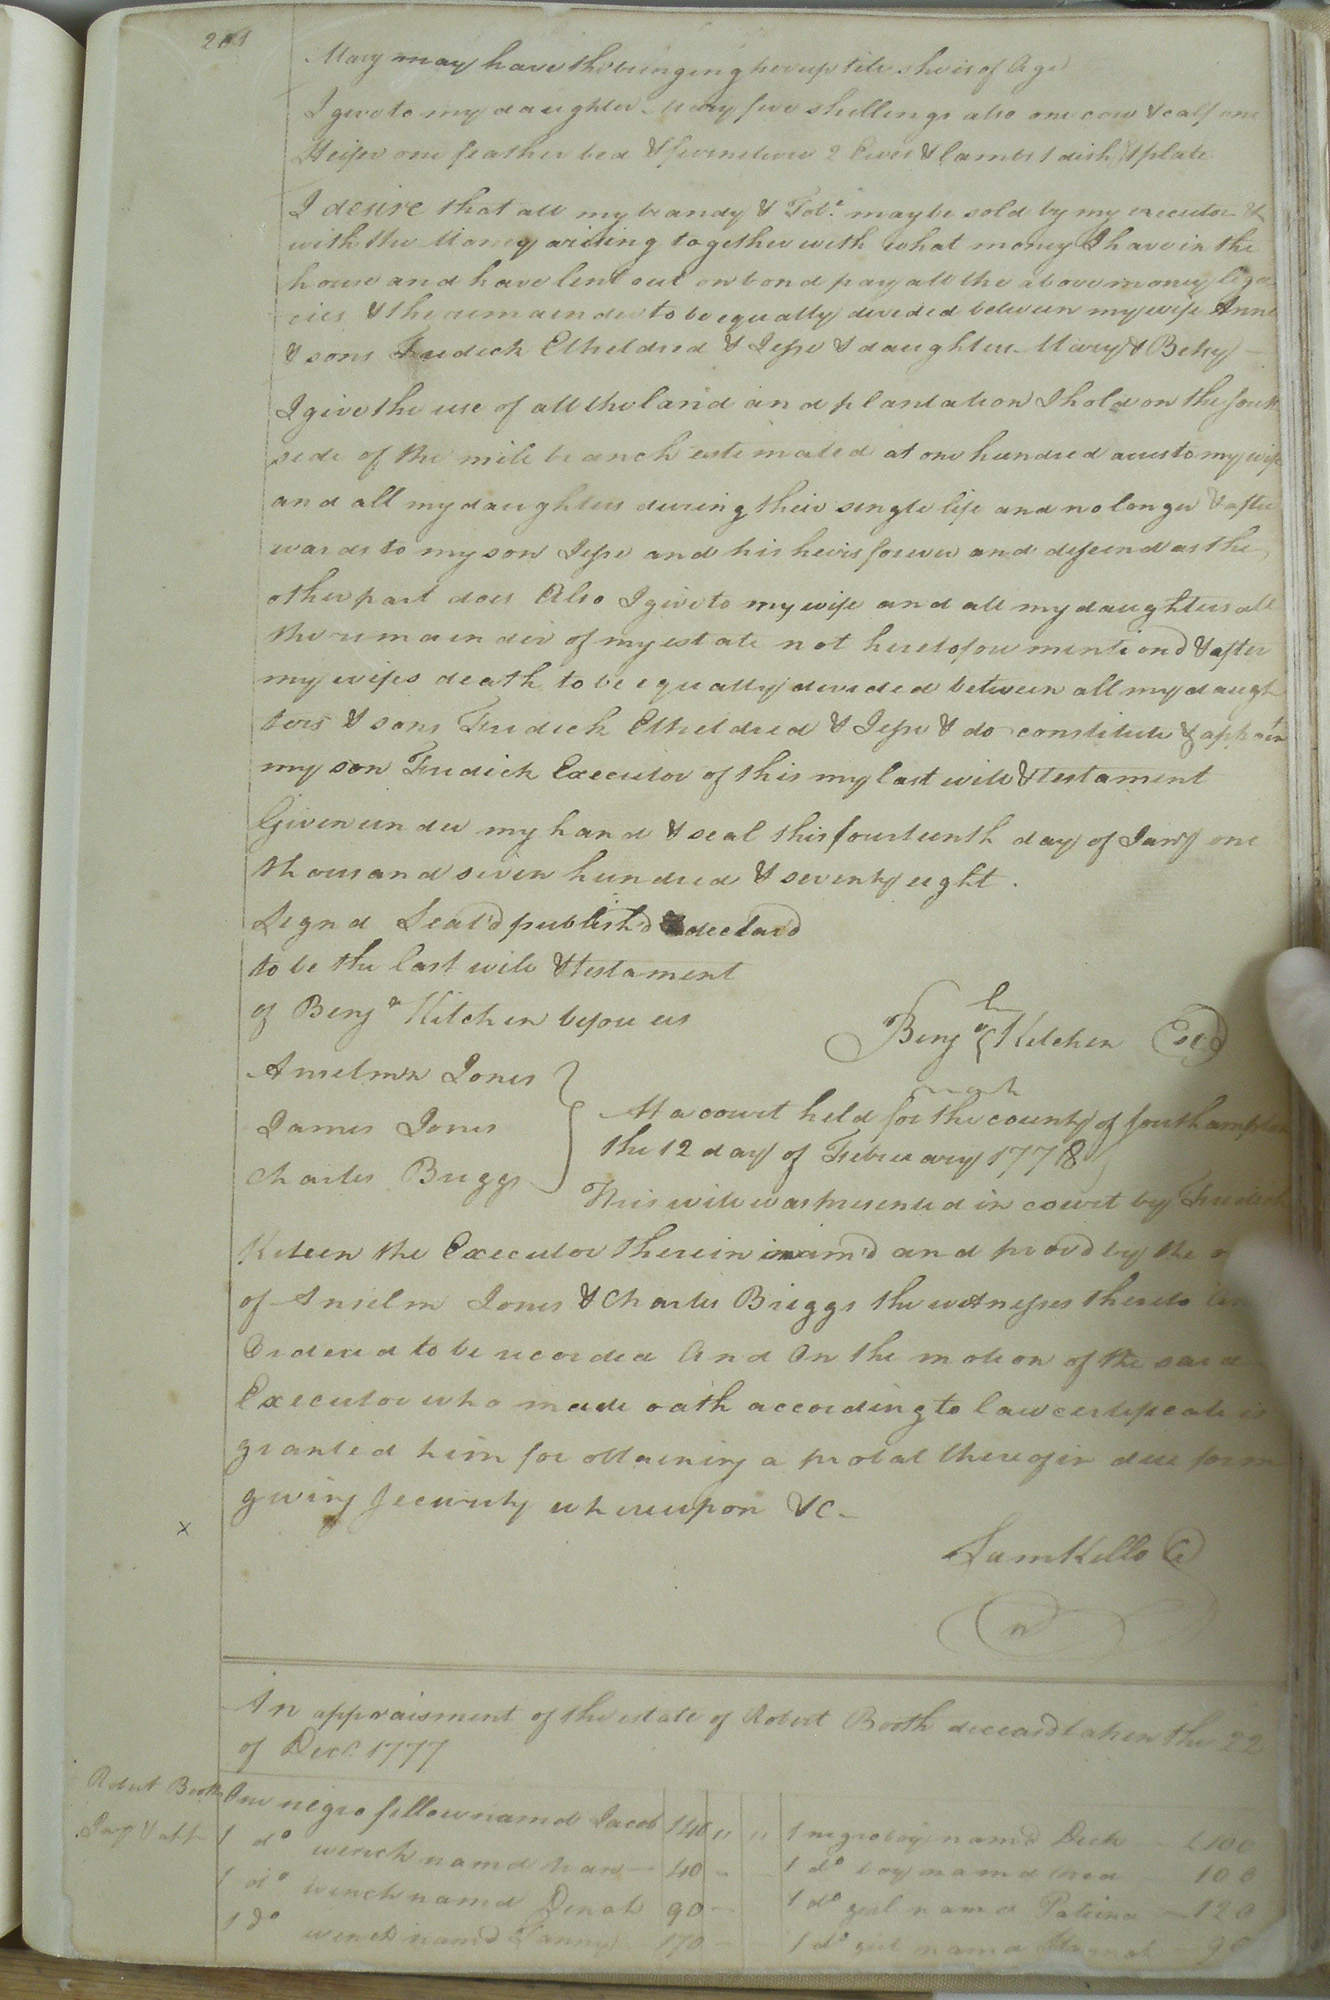 Mary may have the bringing her up till she is of Age
I give to my daughter Mary five shillings also one cow & calf one
Heifer one feather bed & furneture 2 Ewes & lambs 1 dish 1 plate
I desire that all my brandy & Tobo. may be sold by my executor &
with the Money arising together with what money I have in the
house and have lent out on bond pay all the above money lega
cies & the remainder to be equally devided between my wife Anne
& sons Fredick Etheldred & Jesse & daughters Mary & Betsy —
I give the use of all the land and plantation I hold on the south
side of the mile branch estimated at one hundred acres to my wife
and all my daughters during their single life and no longer & after
wards to my son Jesse and his heirs forever and defend as the
other part does Also I give to my wife and all my daughters all
the remainder of my estate not heretofore mentiond & after
my wifes death to be equally devided between all my daugh
ters & sons Fredick Etheldred & Jesse & do constitute & appoint
my son Fredick Executor of this my last will & testament
Given under my hand & seal this fourteenth day of Jany one
thousand seven hundred & seventy eight.
Signd Seal'd publish'd & declard
to be the last will & testament
of Benja Kitchen before us
Benja Kitchen
Anselm Jones
James Jones
Charles Briggs
At a court held for the county of Southampton
the 12 day of February 1778
This will was presented in court by Fredick
Kitcen the Executor therein nam'd and prov'd by the
of Anselm Jones & Charles Briggs the witnesses thereto
Ordered to be recorded And On the motion of the said
Executor who made oath according to law certificate is
granted him for obtaining a probat thereof in due form
giving security whereupon &c.
Sam Kello
An appraisment of the estate of Robert Booth deceasd taken the 22
of Decr. 1777
Robert Booth
One negro fellow namd Jacob 140 " " 1 negro boy namd Dick — £100
1 do wench namd Nan — 40 — 1 do boy namd 100
1 do wench namd Dinah 90 — 1 do girl namd — 120
1 do wench namd Fanny 170 — 1 do girl namd Hannah — 90